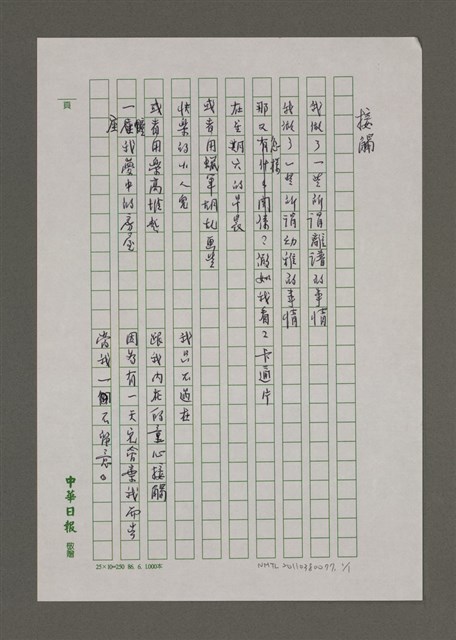 接觸
我做了一些所謂離譜的事情
我做了一些所謂幼稚的事情
那又有什么關係？假如我看了卡通片
在星期六的早晨
或者用蠟筆胡亂畫些
快樂的小人兒
或者用樂高堆起
一座我夢中的房屋
我只不過在
跟我內在的童心接觸
因為有一天它會棄我而去
當我一個不留意。
頁
中華日報 敬贈
25×10=250 86.6.1000本
NMTL20110380097, 1/1